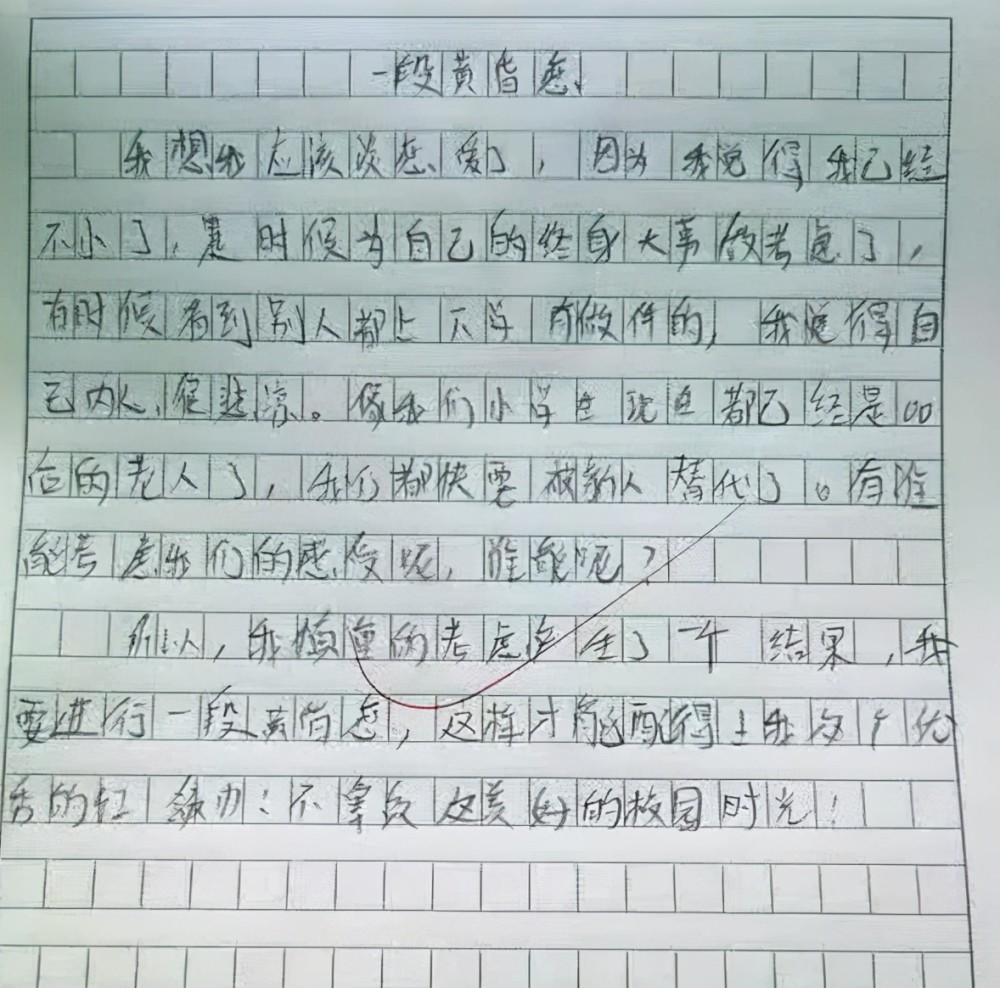 一段黄昏恋
我想我应该谈恋爱了，因为我觉得我已经
不小了，是时候为自己的终身大事做考虑了，
有时候看到别人都上下学有做伴的，我觉得自
己内心很悲凉。像我们小学生现在都已经是00
后的老人了，我们都快要被新人替代了。有谁
能考虑我们的感受呢，谁能呢？
所以，我慎重的考虑产生了一个结果，我
要进行一段黄昏恋，这样才能配得上我这个优
秀的红领巾！不辜负这美好的校园时光！